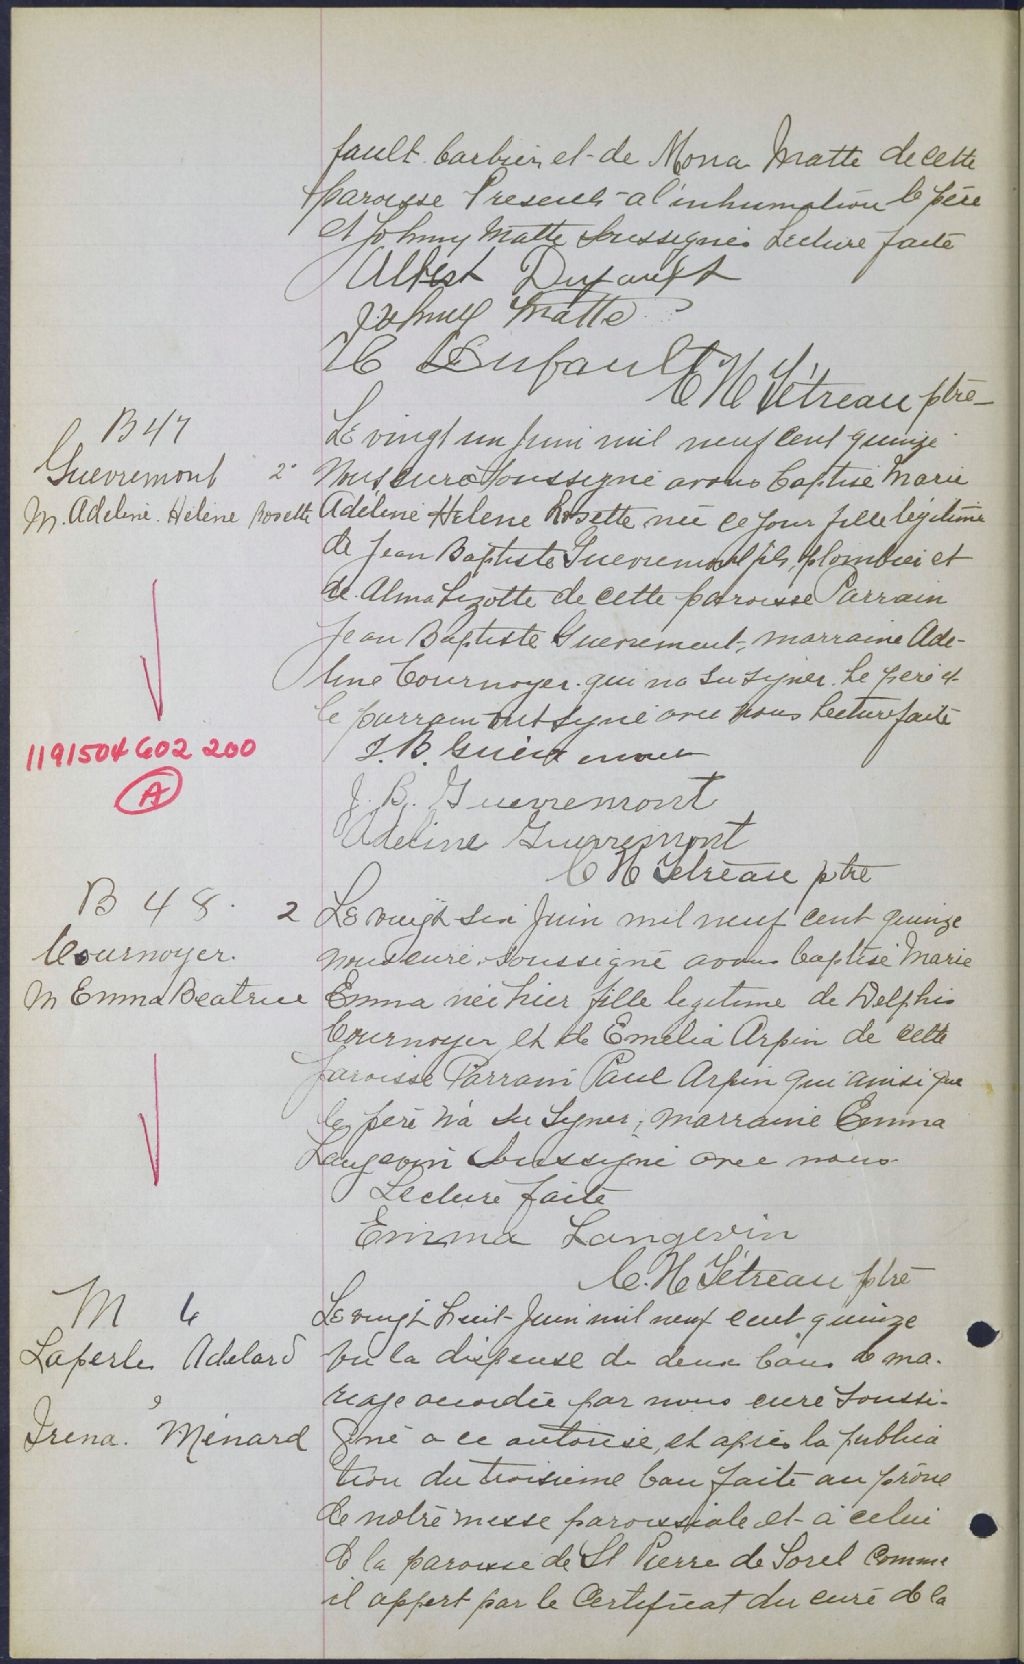 fault barbier et de Mona Matte de cette
paroisse Presents a l'inhumation le père
et Johnny Matte Soussignés Lecture faite
Albert Dufault
Johnny Matte
H Dufault
C H Tétreau ptre
B 47
Guevremont
M. Adeline. Helene Rosette
2
Le vingt un Juin mil neuf cent quinze
Nous curé Soussigné avons baptisé Marie
Adéline Helene Rosette née ce jour fille légitime
de Jean Baptiste Guevremont fils, plombier et
de Alma Lizotte de cette paroisse Parrain
Jean Baptiste Guevremont, marraine Ade-
line Cournoyer qui na su signer. Le père et
le parrain ont signé avec nous Lecture faite
J. B. Guevremont
J. B. Guevremont
Adeline Guevremont
C H Tétreau ptre
1191504602 200
A
B 48.
Cournoyer.
M Emma Beatrice
2
Le vingt six Juin mil neuf cent quinze
nous curé soussigné avons baptisé Marie
Emma née hier fille legitime de Delphis
Cournoyer et de Emelia Arpin de cette
paroisse Parrain Paul Arpin qui ainsi que
le père n'a su signer; marraine Emma
Langevin Soussigné avec nous
Lecture faite
Emma Langevin
C. H Tétreau ptre
M 6
Laperle Adelard
&
Irena. Ménard
Le vingt huit Juin mil neuf cent quinze
vu la dispense de deux bans de ma-
riage accordée par nous curé soussi-
gné a ce autorisé, et après la publica
tion du troisieme ban faite au prône
de notre messe paroissiale et à celui
de la paroisse de St Pierre de Sorel comme
il appert par le Certificat du curé de la